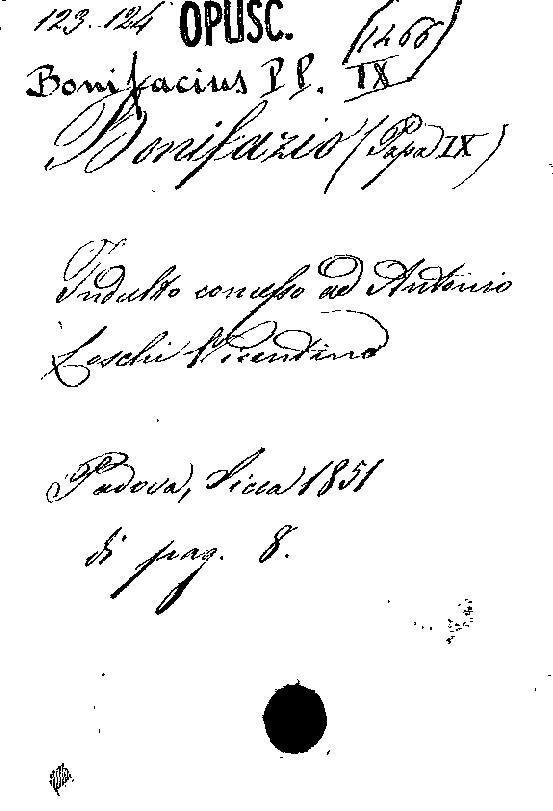 123.124 OPUSC. (1466)
Bonifacius PP. IX
Bonifazio (Papa IX)
Indulto concesso ad Antonio
Loschi Vicentino
Padova, Sicca 1851
di pag. 8.